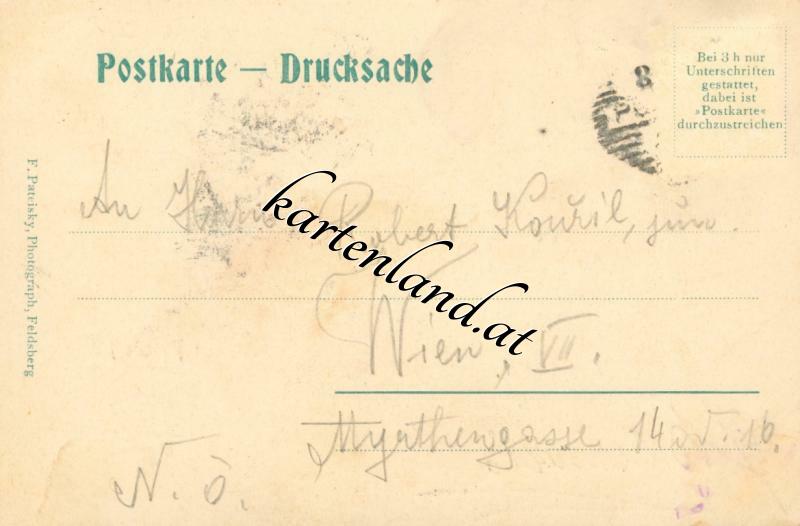 Postkarte — Drucksache
8
Bei 3 h nur
Unterschriften
gestattet,
dabei ist
»Postkarte«
durchzustreichen
An Herrn Robert Kouřil, jun.
kartenland.at
Wien, VII.
Myrthengasse 14 od. 16.
N. Ö.
F. Pateisky, Photograph, Feldsberg